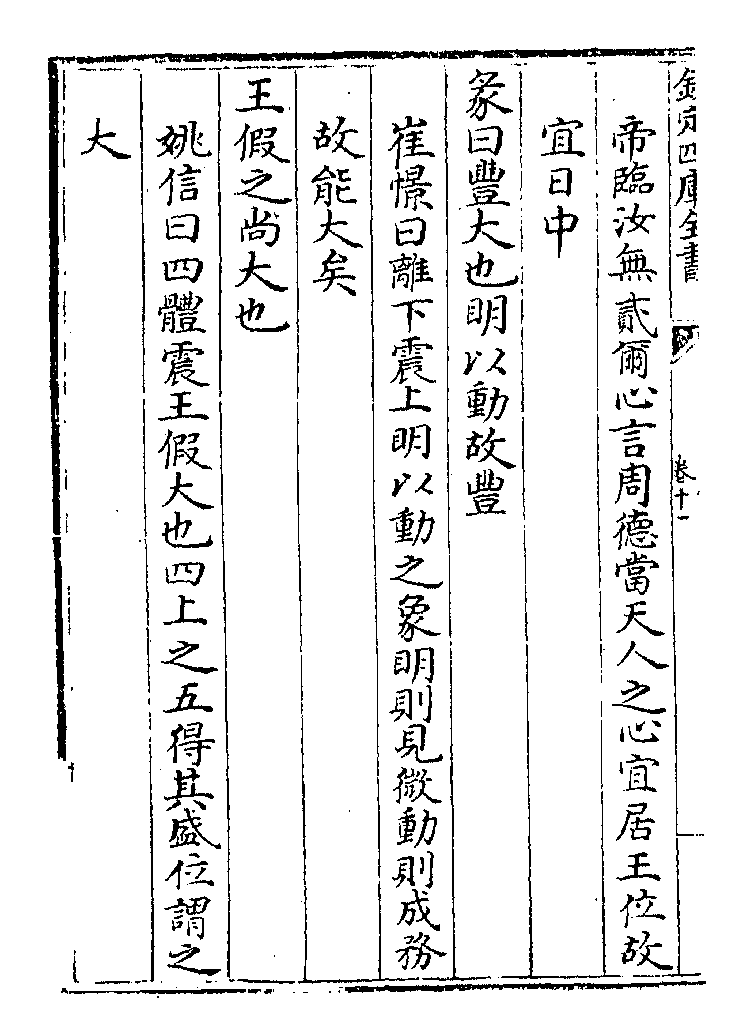 欽定四庫全書
卷十一
帝臨汝無貳爾心言周德當天人之心宜居王位故
宜日中
彖曰豐大也明以動故豐
崔憬曰離下震上明以動之象明則見微動則成務
故能大矣
王假之尚大也
姚信曰四體震王假大也四上之五得其盛位謂之
大